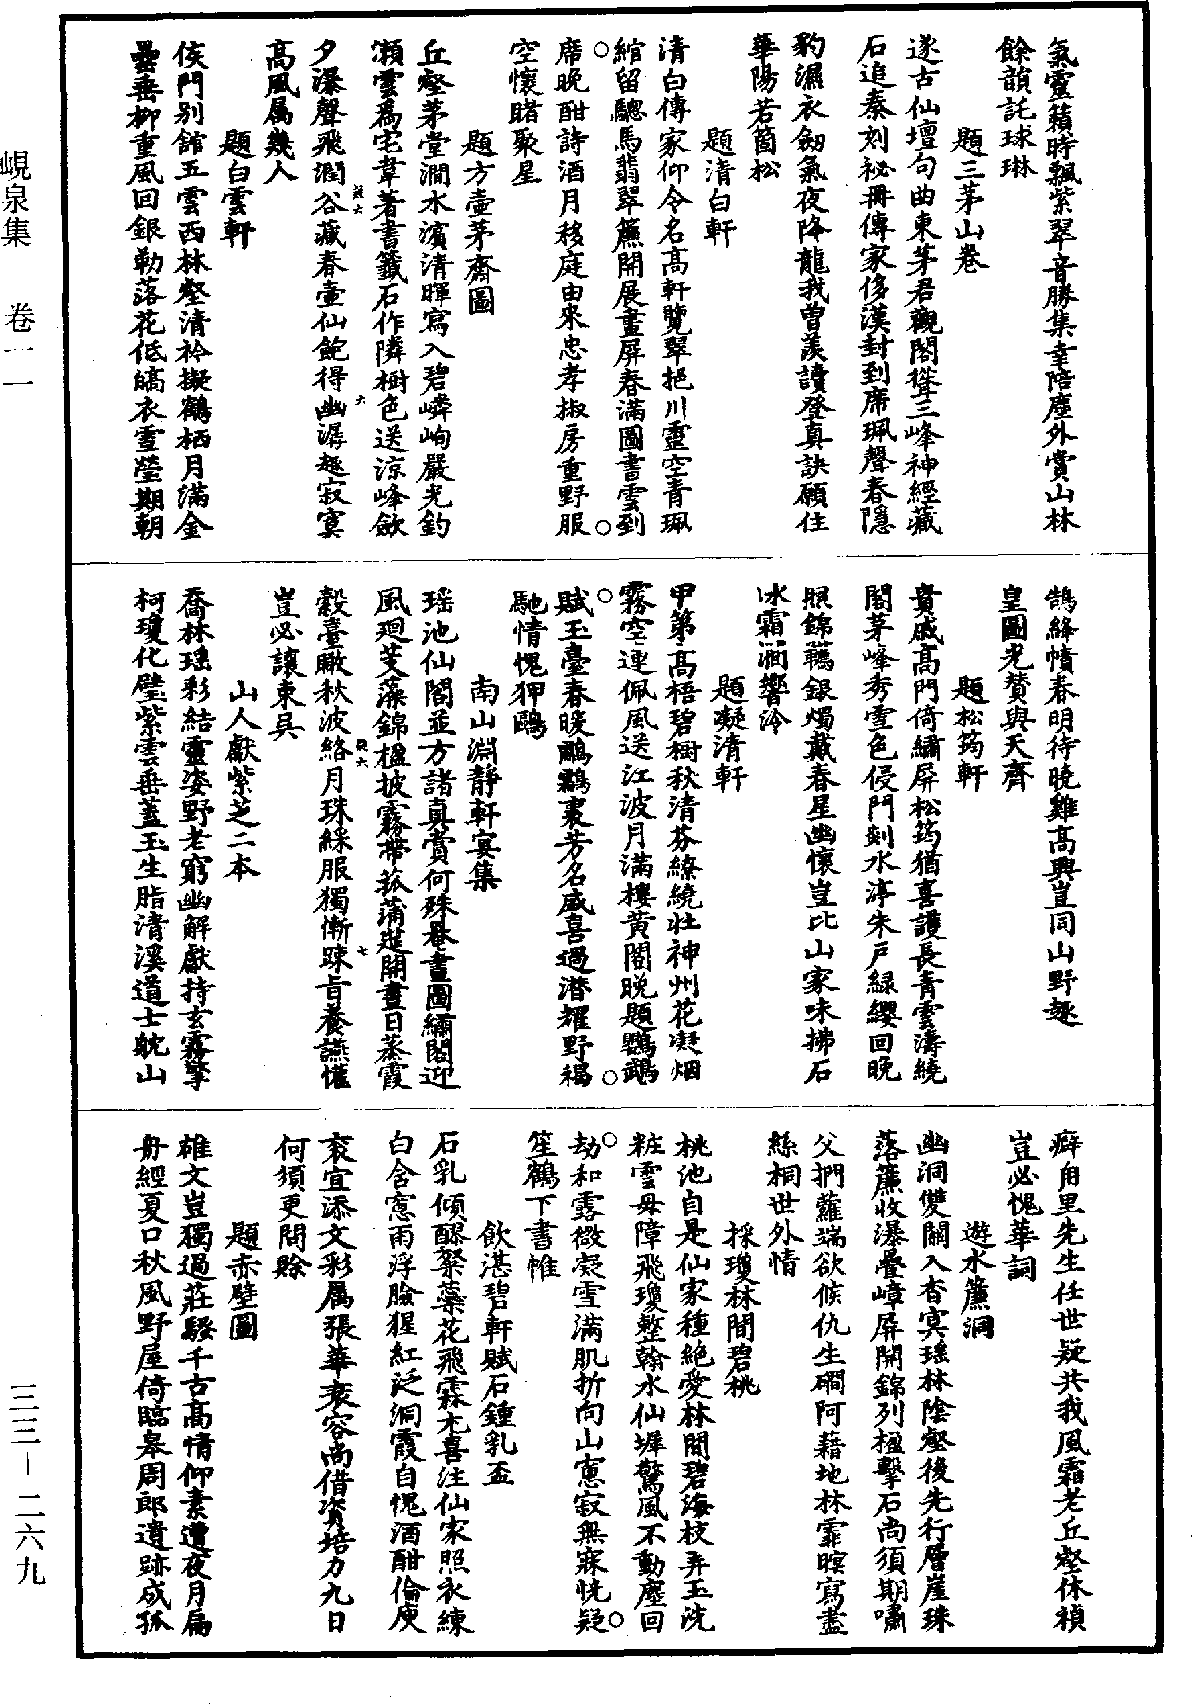 氣靈籟時飄紫翠音勝集幸陪塵外賞山林
餘韻託球琳
題三茅山卷
遂古仙壇句曲東茅君觀閣聳三峰神經藏
石追秦刻祕冊傳家侈漢封到席珮聲春隱
豹濕衣劒氣夜降龍我曾羡讀登真訣願住
華陽若箇松
題清白軒
清白傳家仰令名高軒覽翠挹川靈空青珮
綰留驄馬翡翠簾開展畫屏春滿圖書雲到
席晚酣詩酒月移庭由來忠孝椒房重野服
空懷睹聚星
題方壺茅齋圖
丘壑茅堂澗水濱清暉寫入碧嶙峋嚴光釣
瀨雲為宅韋著書籤石作隣樹色送涼峰斂
夕瀑聲飛澗谷藏春壺仙飽得幽潺趣寂寞
高風屬幾人
題白雲軒
侯門別館五雲西林壑清衿擬鶴栖月滿金
罍垂柳重風回銀勒落花低縞衣雪瑩期朝
鵠絳幘春明待晚雞高興豈同山野趣
皇圖光贊與天齊
題松筠軒
貴戚高門倚繡屏松筠猶喜護長青雲濤繞
閣茅峰秀雪色侵門剡水渟朱戶緑纓回晚
照錦韉銀燭戴春星幽懷豈比山家味拂石
冰霜澗響泠
題凝清軒
甲第高梧碧樹秋清芬繚繞壯神州花凝烟
霧空連佩風送江波月滿樓黃閣晚題鸚鵡
賦玉臺春暖鸕鷀裘芳名咸喜過潜耀野褐
馳情愧狎鷗
南山淵靜軒宴集
瑶池仙閣並方諸真賞何殊巷畫圖繡閣迎
風廻芰藻錦楹披霧帶菰蒲筵開晝日蒸霞
縠臺瞰秋波絡月珠綵服獨慚踈旨養讌懽
豈必讓東吳
山人獻紫芝二本
喬林瑶彩結靈姿野老窮幽解獻持玄霧擎
柯瓊化璧紫雲垂蓋玉生脂清溪道士躭山
癖甪里先生任世疑共我風霜老丘壑休禎
豈必愧華詞
遊水簾洞
幽洞雙關入杳冥瑶林陰壑後先行層崖珠
落簾收瀑疊嶂屏開錦列楹擊石尚須期嘯
父捫蘿端欲候仇生磵阿藉地林霏暝寫盡
絲桐世外情
採瓊林間碧桃
桃池自是仙家種絶愛林間碧海枝弄玉洗
粧雲母障飛瓊整翰水仙墀驚風不動塵回
劫和露微凝雪滿肌折向山窻寂無寐恍疑
笙鶴下書帷
飲湛碧軒賦石鍾乳盃
石乳傾醪粲蘂花飛霖尤喜注仙家照衣練
白含窻雨浮臉猩紅泛洞霞自愧酒酣倫庾
衮宜添文彩屬張華衰容尚借資培力九日
何須更問賖
題赤壁圖
雄文豈獨過莊騷千古高情仰素遭夜月扁
舟經夏口秋風野屋倚臨皋周郎遺跡成孤
峴泉集 卷一一
三三－二六九